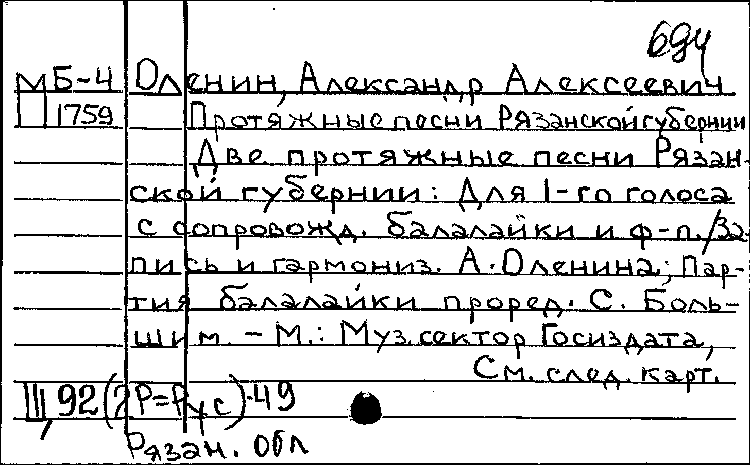 694
МБ-4 Оленин, Александр Алексеевич
П 1759 Протяжные песни Рязанской губернии
Две протяжные песни Рязан-
ской губернии: Для 1-го голоса
с сопровожд. балалайки и ф-п./За-
пись и гармониз. А. Оленина; Пар-
тия балалайки проред. С. Боль-
шим. - М.: Муз. сектор Госиздата,
См. след. карт.
Ш, 92(2Р=Рус)-49
Рязан. обл